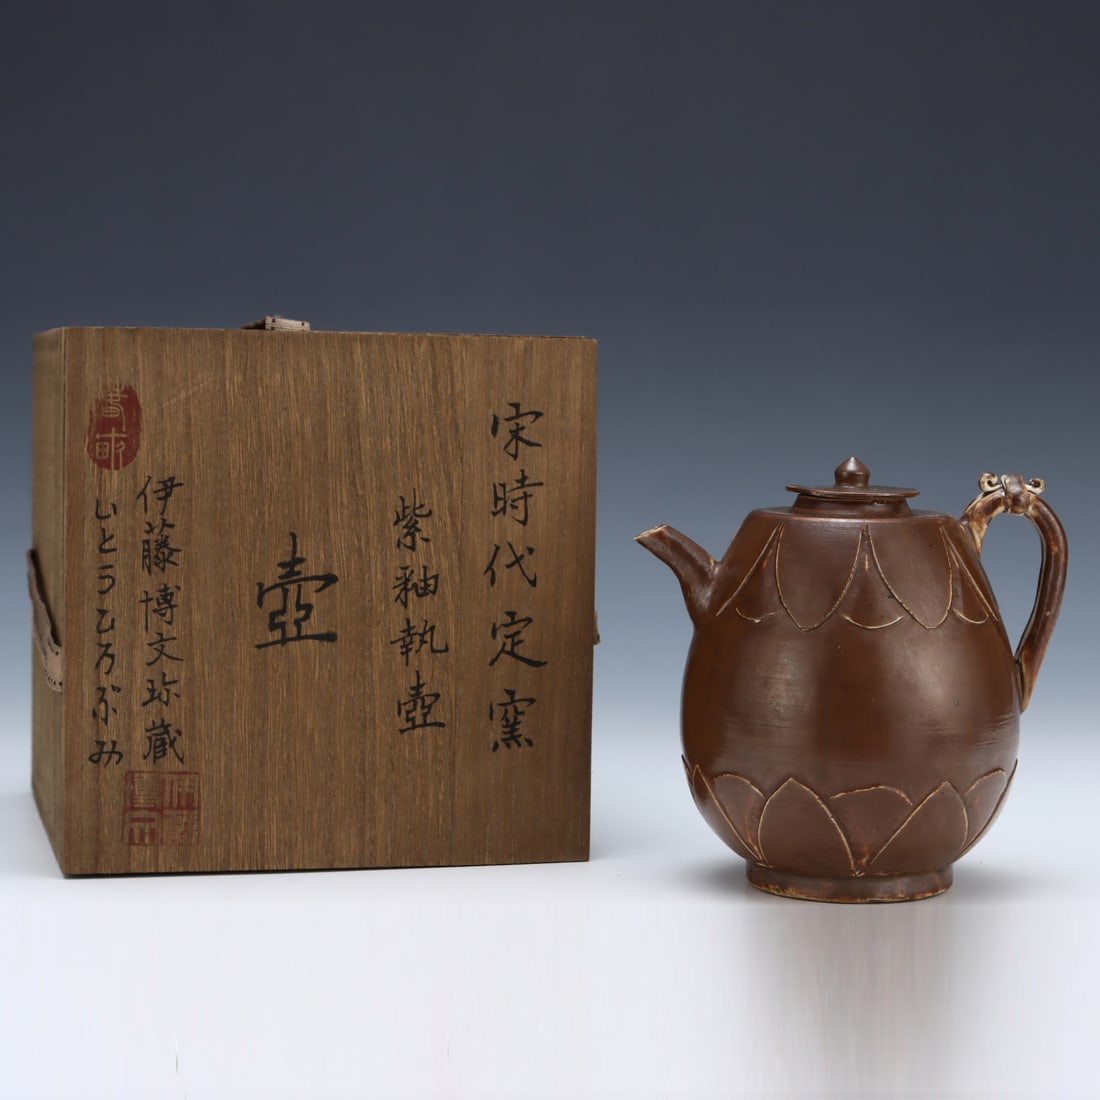 宋時代定窯
紫釉執壺
壺
伊藤博文珎蔵
いとうひろぶみ